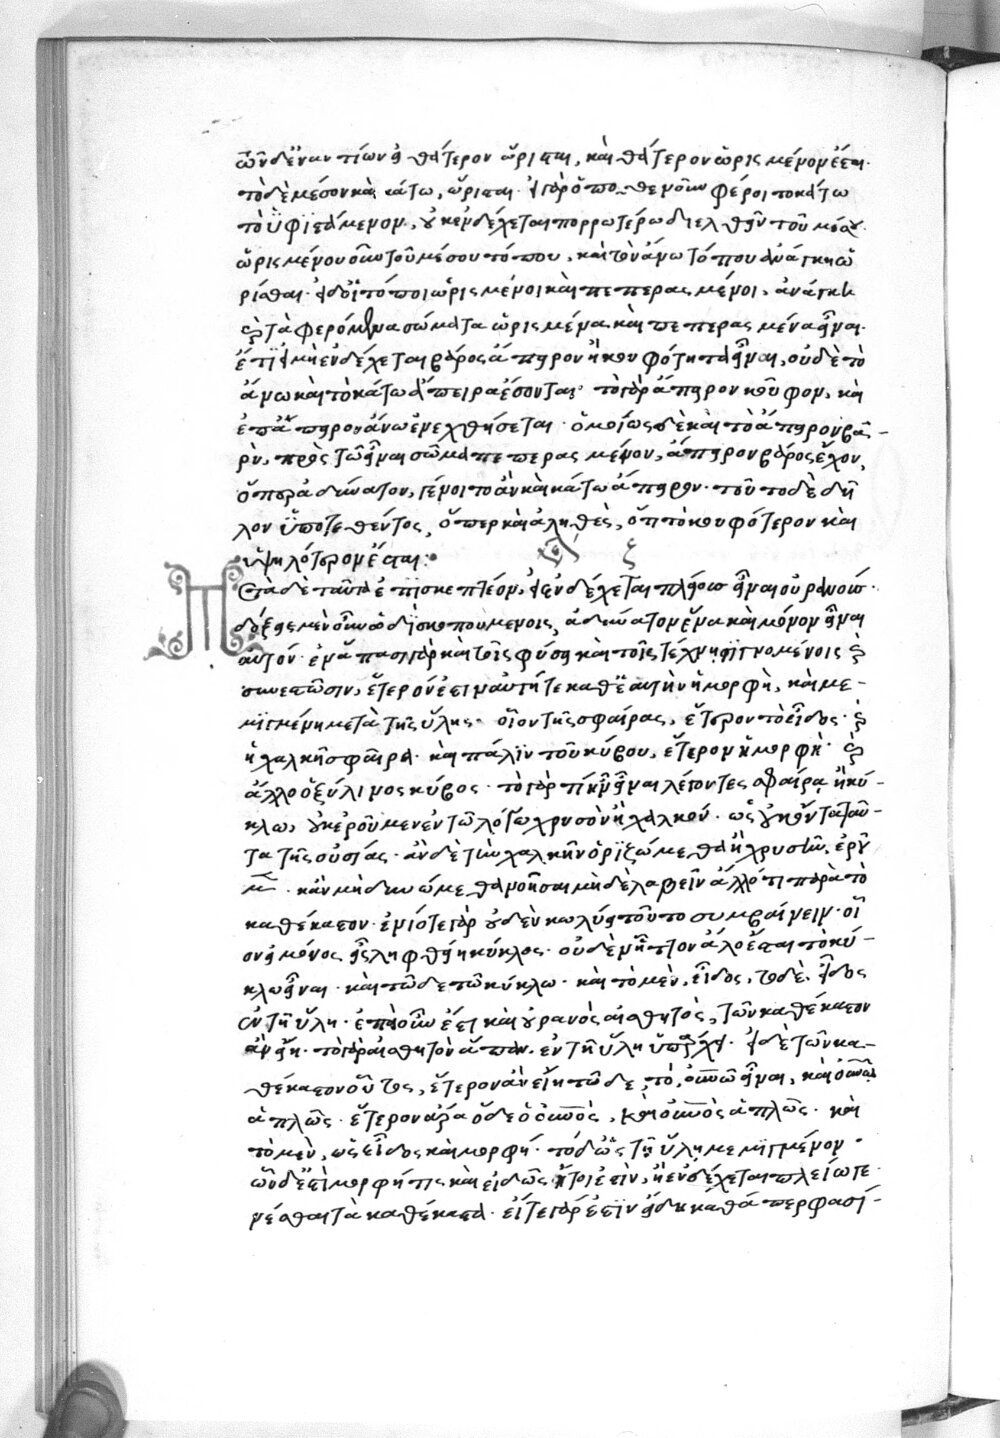 ὧν δ' ἐναντίων εἰ θάτερον ὥρισται, καὶ θάτερον ὡρισμένον ἔσται.
τὸ δὲ μέσον καὶ κάτω, ὥρισται. εἰ γὰρ ὅποθενοῦν φέροιτο κάτω
τὸ ὑφιστάμενον, οὐκ ἐνδέχεται πορρωτέρω διελθεῖν τοῦ μέσου.
ὡρισμένου οὖν τοῦ μέσου τόπου, καὶ τὸν ἄνω τόπον ἀνάγκη ὡ
ρίσθαι. εἰ δ' οἱ τόποι ὡρισμένοι καὶ πεπερασμένοι, ἀνάγκη
καὶ τὰ φερόμενα σώματα ὡρισμένα καὶ πεπερασμένα εἶναι.
ἔτι εἰ μὴ ἐνδέχεται βάρος ἄπειρον ἢ κουφότητα εἶναι, οὐδὲ τὸ
ἄνω καὶ τὸ κάτω ἄπειρα ἔσονται. τὸ γὰρ ἄπειρον κοῦφον, καὶ
ἐπ' ἄπειρον ἄνω ἐνεχθήσεται. ὁμοίως δὲ καὶ τὸ ἄπειρον βα-
ρὺ, πρὸς τῷ εἶναι σῶμα πεπερασμένον, ἄπειρον βάρος ἔχον,
ὅπερ ἀδύνατον, γένοιτο ἂν καὶ κάτω ἄπειρον. τοῦτο δὲ δῆ
λον ὑποτεθέντος, ὅπερ καὶ ἀληθὲς, ὅτι τὸ κουφότερον καὶ
ὑψηλότερον ἔσται:
Μετὰ δὲ ταῦτα ἐπισκεπτέον, εἰ ἐνδέχεται πλείους εἶναι οὐρανούς.
δόξειε μὲν οὖν ὡδὶ σκοπουμένοις, ἀδύνατον ἕνα καὶ μόνον εἶναι
αὐτόν. ἐν ἅπασι γὰρ καὶ τοῖς φύσει καὶ τοῖς τέχνῃ γινομένοις καὶ
συνεστῶσιν, ἕτερόν ἐστιν αὐτή τε καθ' ἑαυτὴν ἡ μορφὴ, καὶ με-
μιγμένη μετὰ τῆς ὕλης. οἷον τῆς σφαίρας, ἕτερον τὸ εἶδος. καὶ
ἡ χαλκῆ σφαῖρα. καὶ πάλιν τοῦ κύβου, ἕτερον ἡ μορφὴ. καὶ
ἄλλο ὁ ξύλινος κύβος. τὸ γὰρ τί ἦν εἶναι λέγοντες σφαίρᾳ ἢ κύ-
κλῳ, οὐκ ἐροῦμεν ἐν τῷ λόγῳ χρυσὸν ἢ χαλκόν. ὡς οὐκ ὄντα ταῦ-
τα τῆς οὐσίας. ἂν δὲ τὴν χαλκῆν ὁριζώμεθα ἢ χρυσῆν, ἐροῦ
μεν. κἂν μὴ δυνώμεθα νοῆσαι μηδὲ λαβεῖν ἄλλό τι παρὰ τὸ
καθέκαστον. ἐνίοτε γὰρ οὐδὲν κωλύει τοῦτο συμβαίνειν. οἷ
ον εἰ μόνος εἷς ληφθείη κύκλος. οὐδὲν ἧττον ἄλλο ἔσται τὸ κύ-
κλῳ εἶναι. καὶ τῷδε τῷ κύκλῳ. καὶ τὸ μὲν, εἶδος, τὸ δὲ, εἶδος
ἐν τῇ ὕλῃ. ἐπεὶ οὖν ἐστι καὶ οὐρανὸς αἰσθητὸς, τῶν καθέκαστον
ἂν εἴη. τὸ γὰρ αἰσθητὸν ἅπαν ἐν τῇ ὕλῃ ὑπῆρχε. εἰ δὲ τῶν κα-
θέκαστον οὗτος, ἕτερον ἂν εἴη τῷδε τῷ οὐνῷ εἶναι, καὶ οὐνῷ
ἁπλῶς. ἕτερον ἄρα ὅδε ὁ οὐνὸς, καὶ οὐνὸς ἁπλῶς. καὶ
τὸ μὲν, ὡς εἶδος καὶ μορφή. τὸ δ' ὡς τῇ ὕλῃ μεμιγμένον.
ὧν δ' ἐστὶ μορφή τις καὶ εἶδος, ἤτοι ἐστὶν, ἢ ἐνδέχεται πλείω γε
νέσθαι τὰ καθέκαστα. εἴτε γάρ ἐστιν εἴδη καθάπερ φασί-